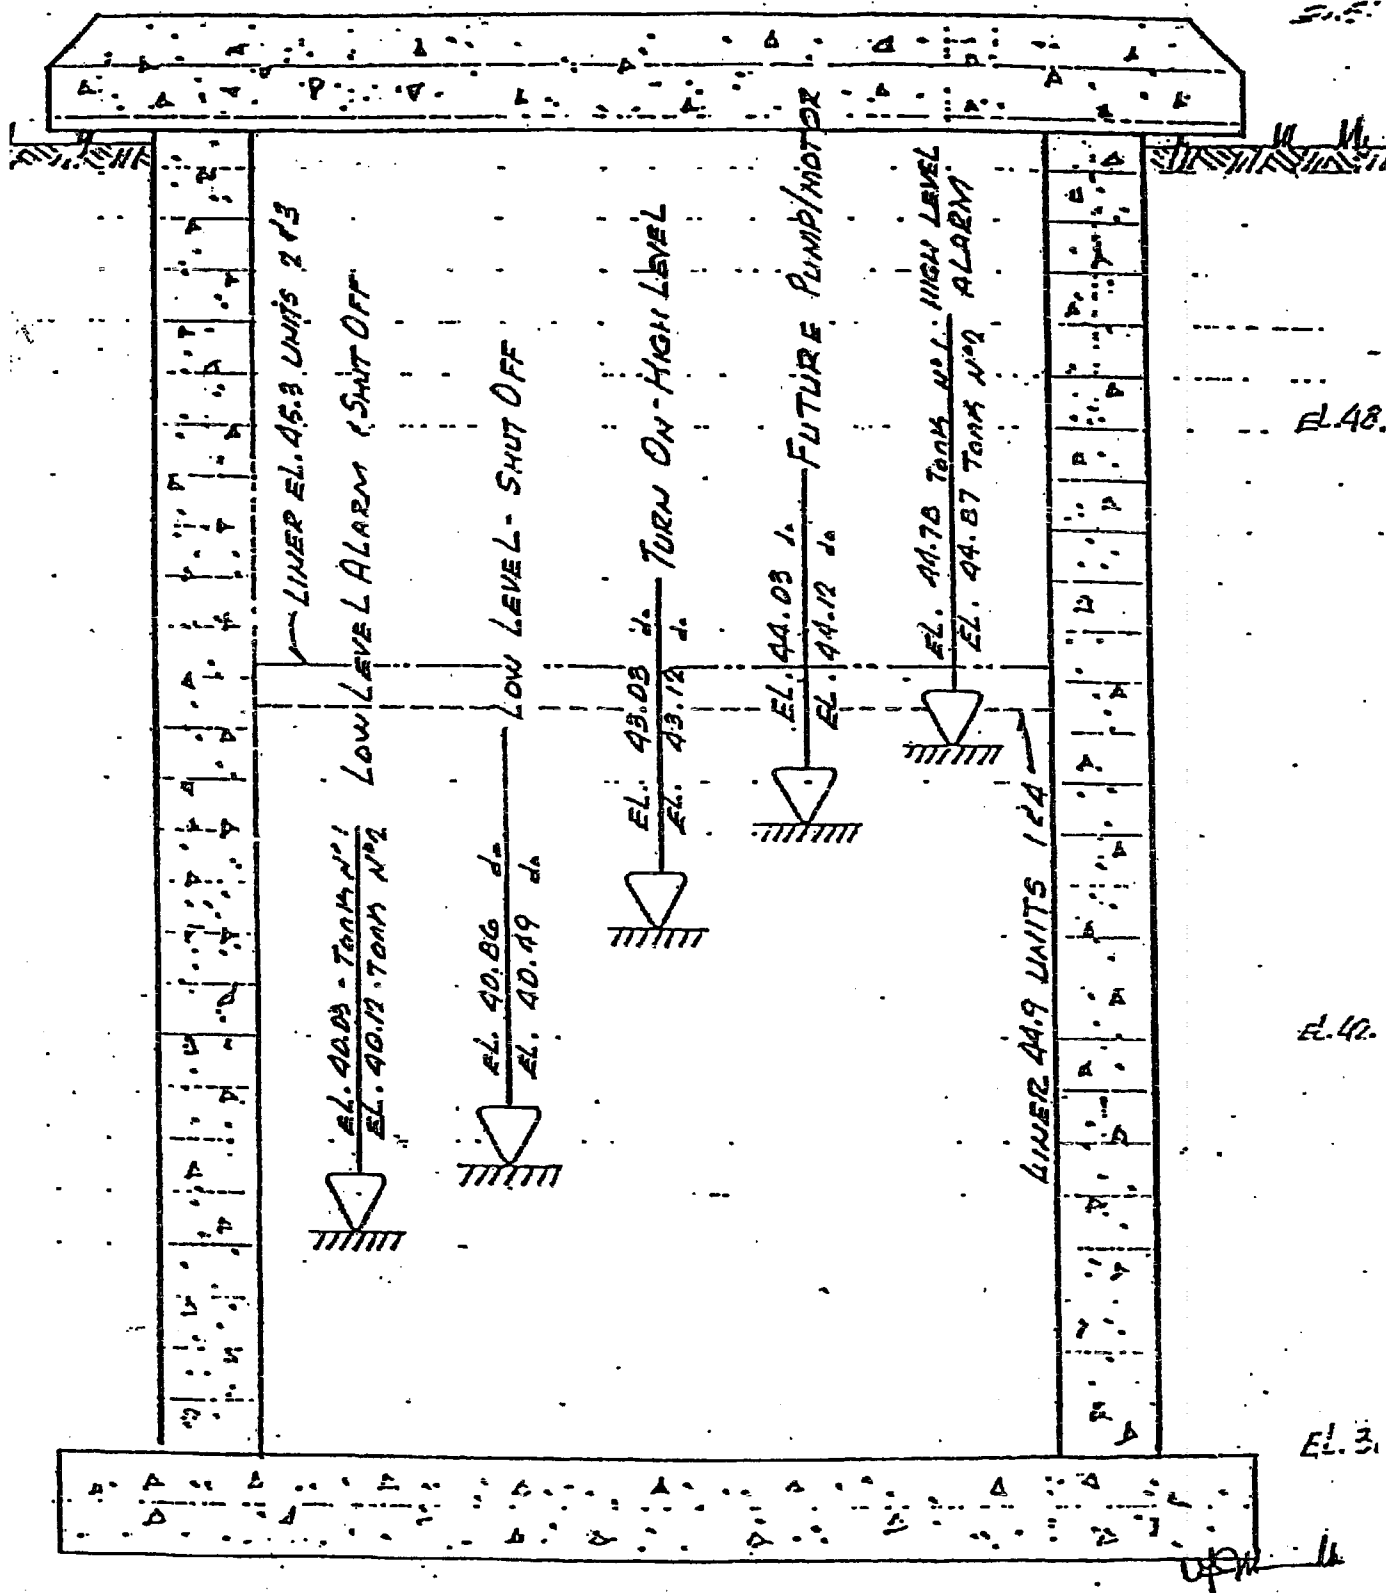 LINER EL. 45.3 UNITS 2 & 3
LOW LEVEL ALARM & SHUT OFF
EL. 40.03 - TANK Nº 1
EL. 40.12 - TANK Nº 2
LOW LEVEL - SHUT OFF
EL. 40.86 do
EL. 40.49 do
TURN ON - HIGH LEVEL
EL. 43.03 do
EL. 43.12 do
FUTURE PUMP/MOTOR
EL. 44.03 do
EL. 44.12 do
HIGH LEVEL
ALARM
EL. 44.78 TANK Nº 1
EL. 44.87 TANK Nº 2
LINER 44.9 UNITS 1 & 4
EL. 48.
EL. 42.
EL. 3